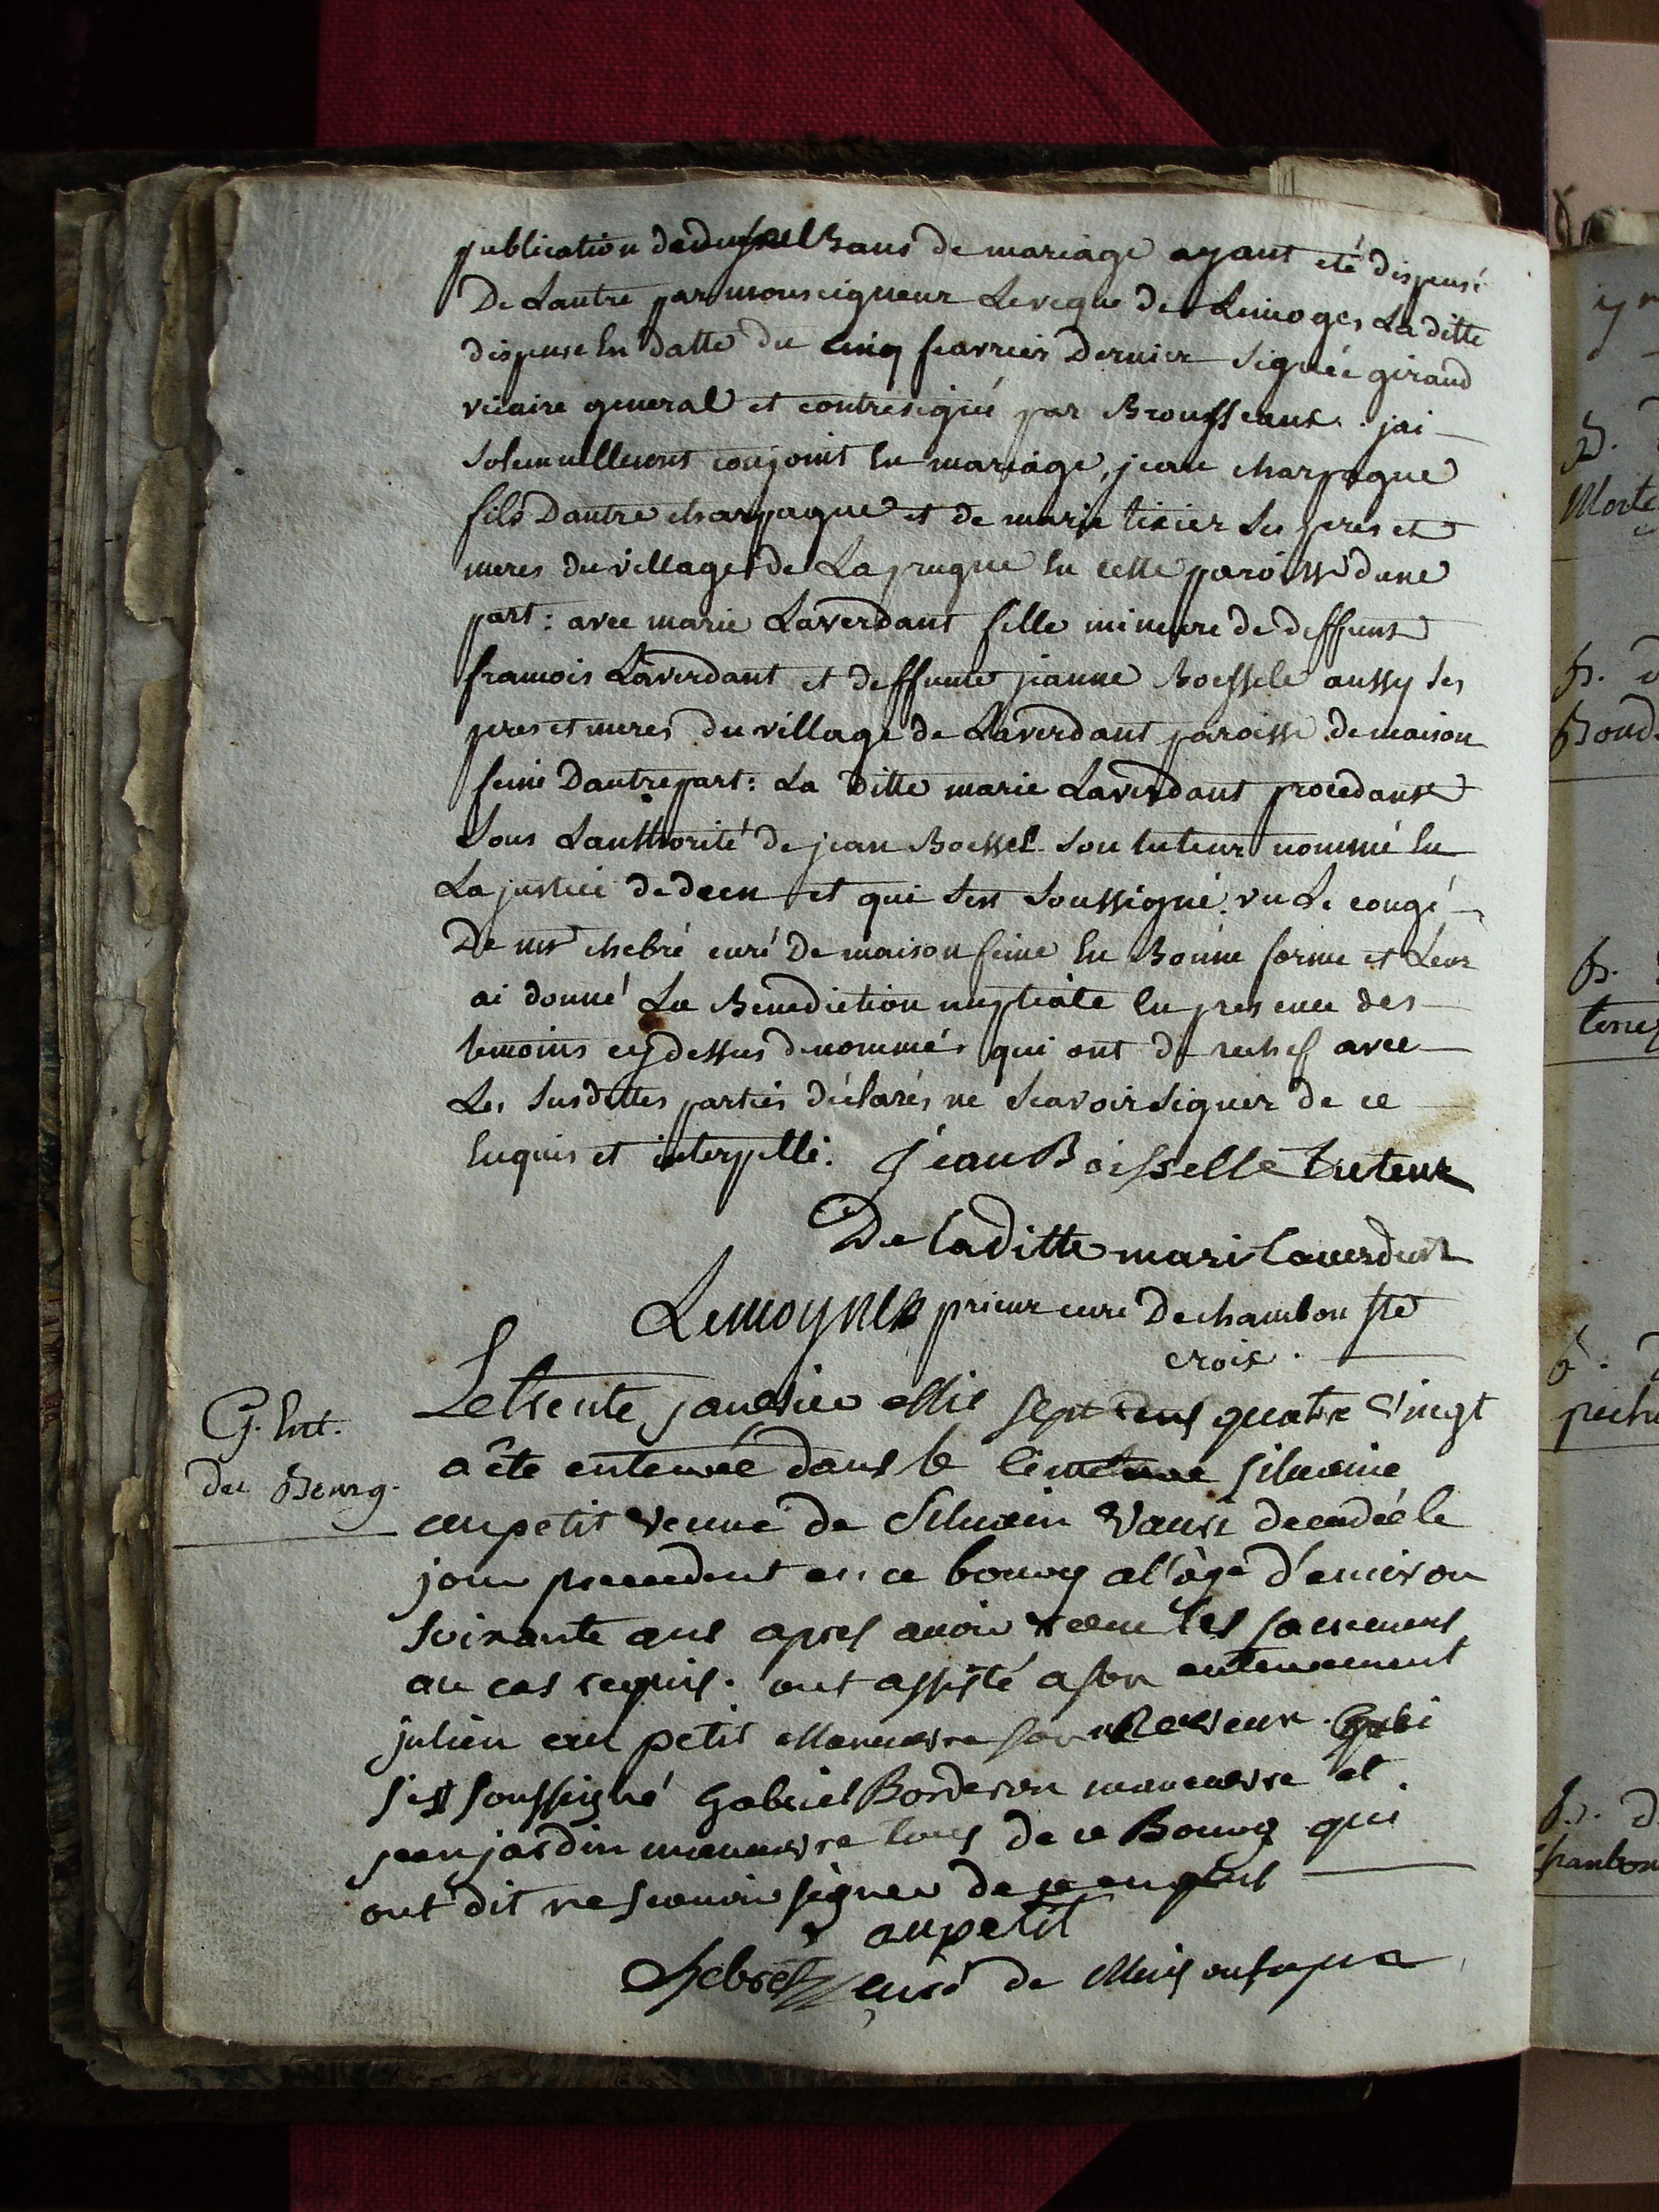 publication de deux seul Bans de mariage ayant eté dispensé
De Lautre par monseigneur Leveque de Limoges La ditte
dispense En datte du cinq feavrier Dernier Signée giraud
vicaire general et contresigné par Brousseaux. jai
Solemnellement conjoint En mariage, jean charpagne
fils Dautre charpagne et de marie tixier Ses peres et
meres du village de Laprugne En cette paroisse dune
part: avec marie Laverdant fille mineure de deffunt
francois Laverdant et deffunte jeanne Boessele aussy Ses
peres et meres du village de Laverdant paroisse de maison
feine Dautre part: La Ditte marie Laverdant procedant
Sous Lauthorité de jean Boessel Son tuteur nommé En
La justice de deen et qui Sest Soussigné. vu Le congé
De mr chebré curé De maison feine En Bonne forme et Leur
ai donné La Benediction nuptiale En presence des
temoins cy dessus denommés qui ont de rechef avec
Les Susdittes parties déclarés ne Scavoir Signer de ce
Enquis et interpellé. Jean Boisselle tuteur
De la ditte mari laverdant
Lemoyne prieur curé De chambon Ste
croix.
G. Ent.
du Bourg.
Le trente janvier Mil sept cens quatre vingt
a été enterrée dans le cimetiere silvaine
aupetit veuve de Silvain decedée le
jour precedent en ce bourg a l'âge d'environ
soixante ans apres avoir receu les sacremens
au cas requis. ont assisté a son enterrement
julien au petit Manuevre son Neveux. Qui
s'est soussigné Gabriel Borderon manuevre et
jean jardin manuevre tous de ce Bourg qui
ont dit ne scavoir signer de ce enquis
aupetit
Chebret curé de Maisonfeyne
7
B.
Morte
B. d
Bond.
B.
B. d
B. d
Chambon